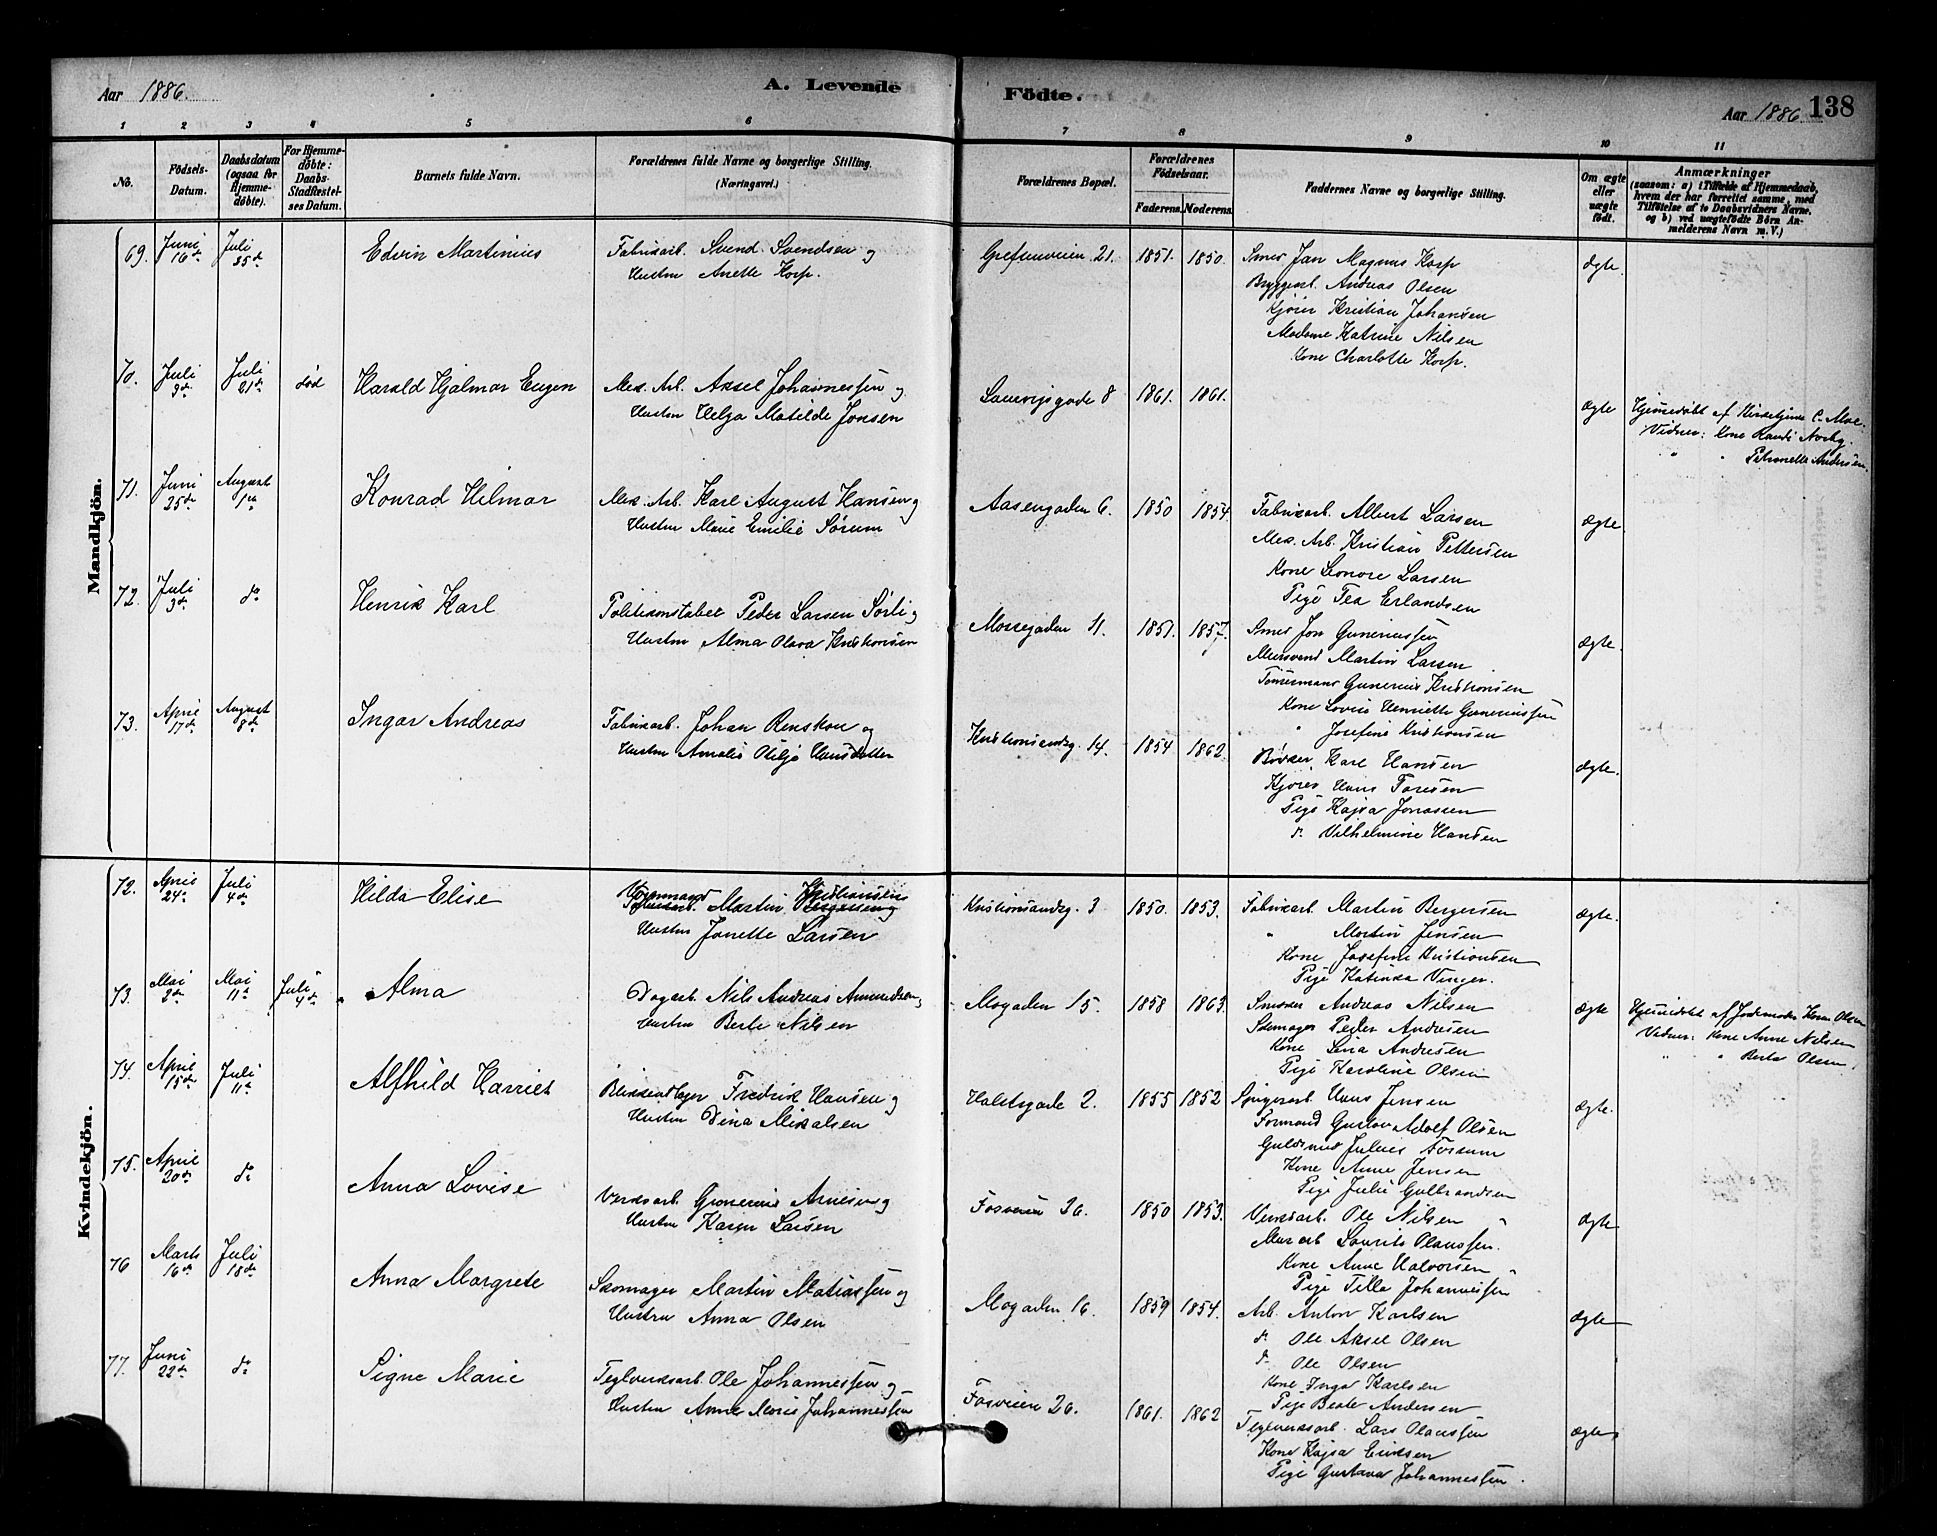 Aar 1886.
A. Levende Födte.
Aar 1886 138
1 2 3 4 5 6 7 8 9 10 11
No.
Födsels-Datum.
Daabsdatum (ogsaa for Hjemme-döbte).
For Hjemme-döbte: Daabs-Stadfæstel-ses Datum.
Barnets fulde Navn.
Forældrenes fulde Navne og borgerlige Stilling.
(Næringsvei.)
Forældrenes Bopæl.
Forældrenes Födselsaar.
Faderens. Moderens.
Faddernes Navne og borgerlige Stilling.
Om ægte eller uægte födt.
Anmærkninger
(saasom: a) i Tilfælde af Hjemmedaab,
hvem der har forrettet samme, med
Tilföielse af to Daabsvidners Navne,
og b) ved uægtefödte Börn An-
melderens Navn m. V.)
Mandkjön.
69. Juni 16de Juli 25de Edvin Martinius Fabrikarb. Svend Svendsen og Grefsenveien 21. 1851. 1850. Smed Jan Magnus Korp ægte.
Hustru Anette Korp. Bryggerarb. Andreas Olsen
Kjører Kristian Johansen
Madame Katrine Nilsen
Kone Charlotte Korp.
70. Juli 3de Juli 21de død Harald Hjalmar Eugen Mek. Arb. Aksel Johannessen og 8 1861. 1861. ægte Hjemmedøbt af C. Moe.
Hustru Helga Matilde Jonsen Vidner: Kone Randi
" " Petronelle Andersen.
71. Juni 25de August 1ste Konrad Hilmar Mek. Arb. Karl August Hansen og Aasengaden 6. 1850 1854. Fabrikarb. Albert Larsen ægte
Hustru Marie Emilie Sørum Mek. Arb. Kristian Pettersen
Kone Leonore Larsen
Pige Tea Erlandsen
72. Juli 3de do Henrik Karl Politikonstabel Peder Larsen Sørli og Mossegaden 11. 1851. 1857. Smed Jon Gunerinssen ægte.
Hustru Alma Olava Kristiansen Martin Larsen
Tømmermand Gunerius Kristiansen
Kone Lovise Henriette Guneriussen
" Josefine Kristiansen
73. April 17de August 8de Ingar Andreas Fabrikarb. Johan Renskou og Kristiansandsg. 14. 1854 1862. Bødker Karl Hansen ægte.
Hustru Amalie Otilje Hansdatter Kjører Hans Toresen
Pige Kajsa Jonassen
do Vilhelmine Hansen
Kvindekjön.
72. April 24de Juli 4de Hilda Elise Formmand Martin Kristiansen Kristiansandsg. 3 1850. 1853. Fabrikarb. Martin Bergersen ægte.
Hustru Jonette Larsen " Martin Jensen
Kone Josefine Kristiansen
Pige Katinka Vinger.
73. Mai 2den Mai 11te Juli 4de Alma Dagarb. Nils Andreas Amundsen Mogaden 15. 1858 1863. Smed Andreas Nilsen ægte Hjemmedøbt af Jordemoder Olsen
Hustru Berte Nilsen Skomager Peder Andresen Vidner: Kone Anne Nilsen
Kone Lina Andresen " " Berte Olsen.
Pige Karoline Olsen
74. April 15de Juli 11te Alfhild Harriet Blikkenslager Fredrik Hansen og Holstsgade 2. 1855 1852 Hans Jensen ægte.
Hustru Dina Mikalsen Formand Gustav Adolf Olsen
Guldsmed Julius Forsum
Kone Anne Jensen
Pige Julie Gulbrandsen
75. April 20de do Anna Lovise Verksarb. Gunerius Arnesen og Fosveien 26. 1850 1853. Verksarb. Ole Nilsen ægte
Hustru Karen Larsen Murarb. Laurits Olaussen.
Kone Anne Halvorsen
Pige Tilla Johannessen
76 Marts 16de Juli 18de Anna Margrete Skomager Martin Matiassen og Mogaden 16. 1859 1854. Arb. Anton Karlsen ægte
Hustru Anna Olsen do Ole Aksel Olsen
do Ole Olsen
Kone Inga Karlsen
Pige Beate Andersen
77. Juni 22de do Signe Marie Teglverksarb. Ole Johannessen og Fosveien 26. 1861. 1862 Teglverksarb. Lars Olaussen ægte
Hustru Anne Marie Johannessen Kone Kajsa Eriksen
Pige Gustava Johannessen.